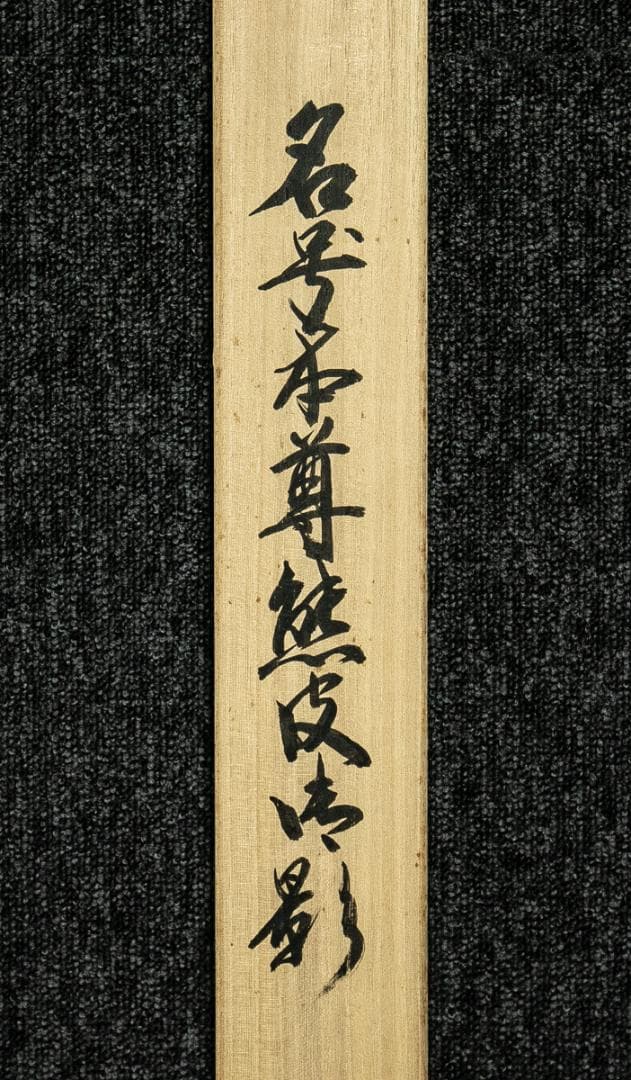 名号本尊熊皮御影